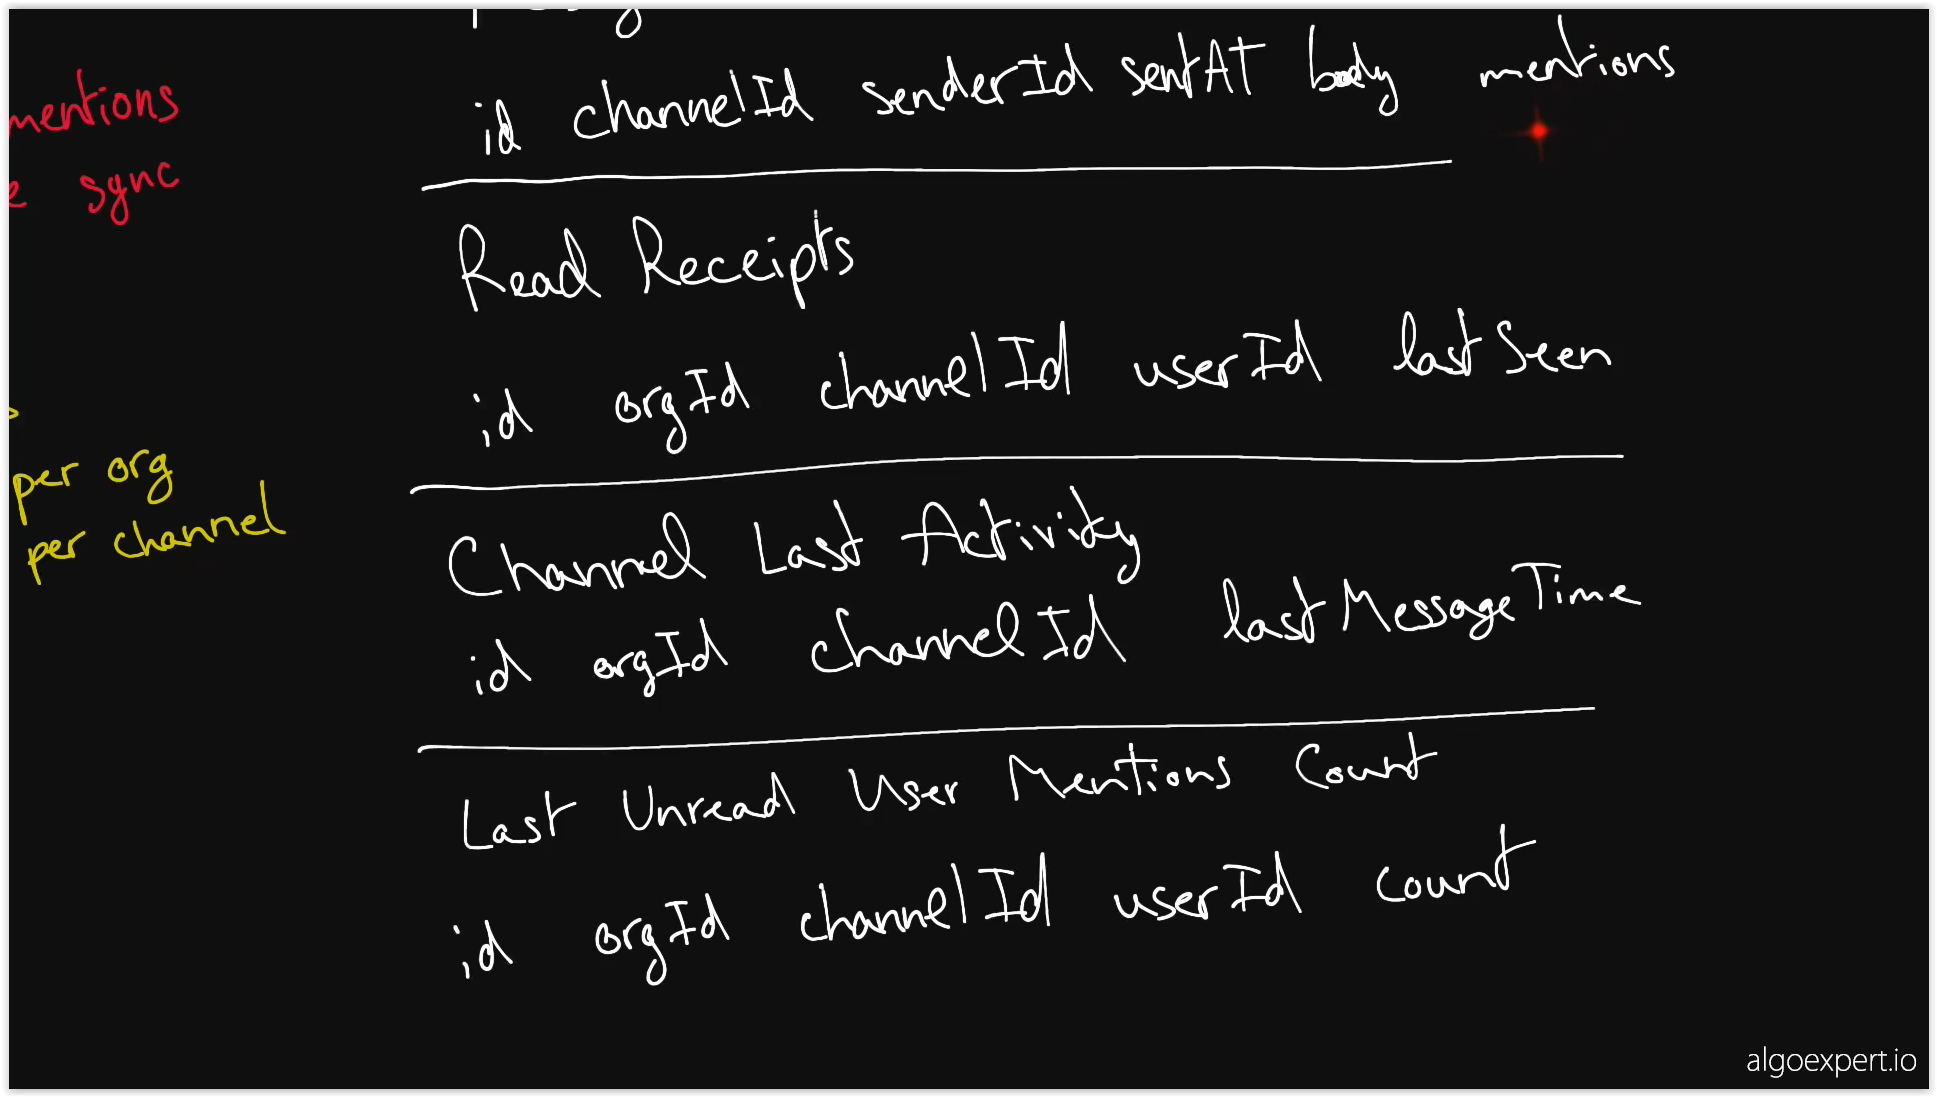 mentions
sync
per org
per channel
id channelId senderId sentAT body mentions
Read Receipts
id orgId channelId userId lastSeen
Channel Last Activity
id orgId channelId lastMessageTime
Last Unread User Mentions Count
id orgId channelId userId count
algoexpert.io